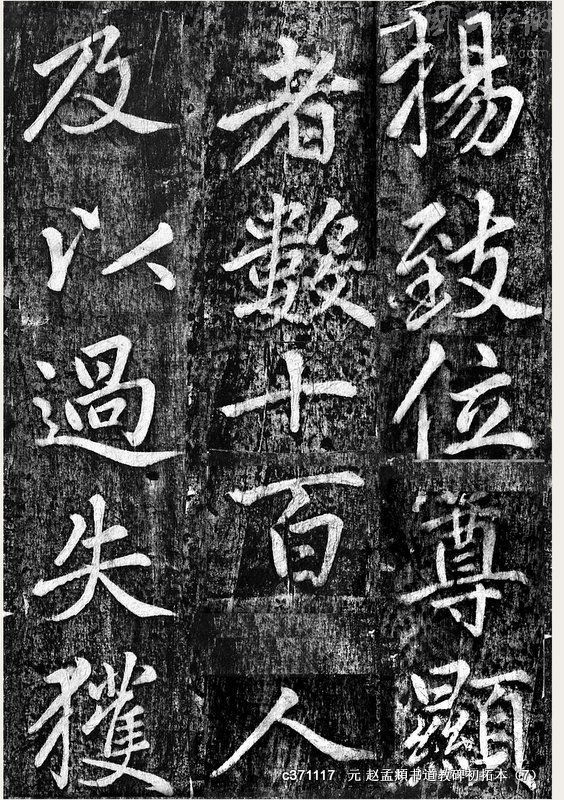 揚致位尊顯
者數十百人
及以過失獲
c371117 元 赵孟頫书道教碑初拓本（7）